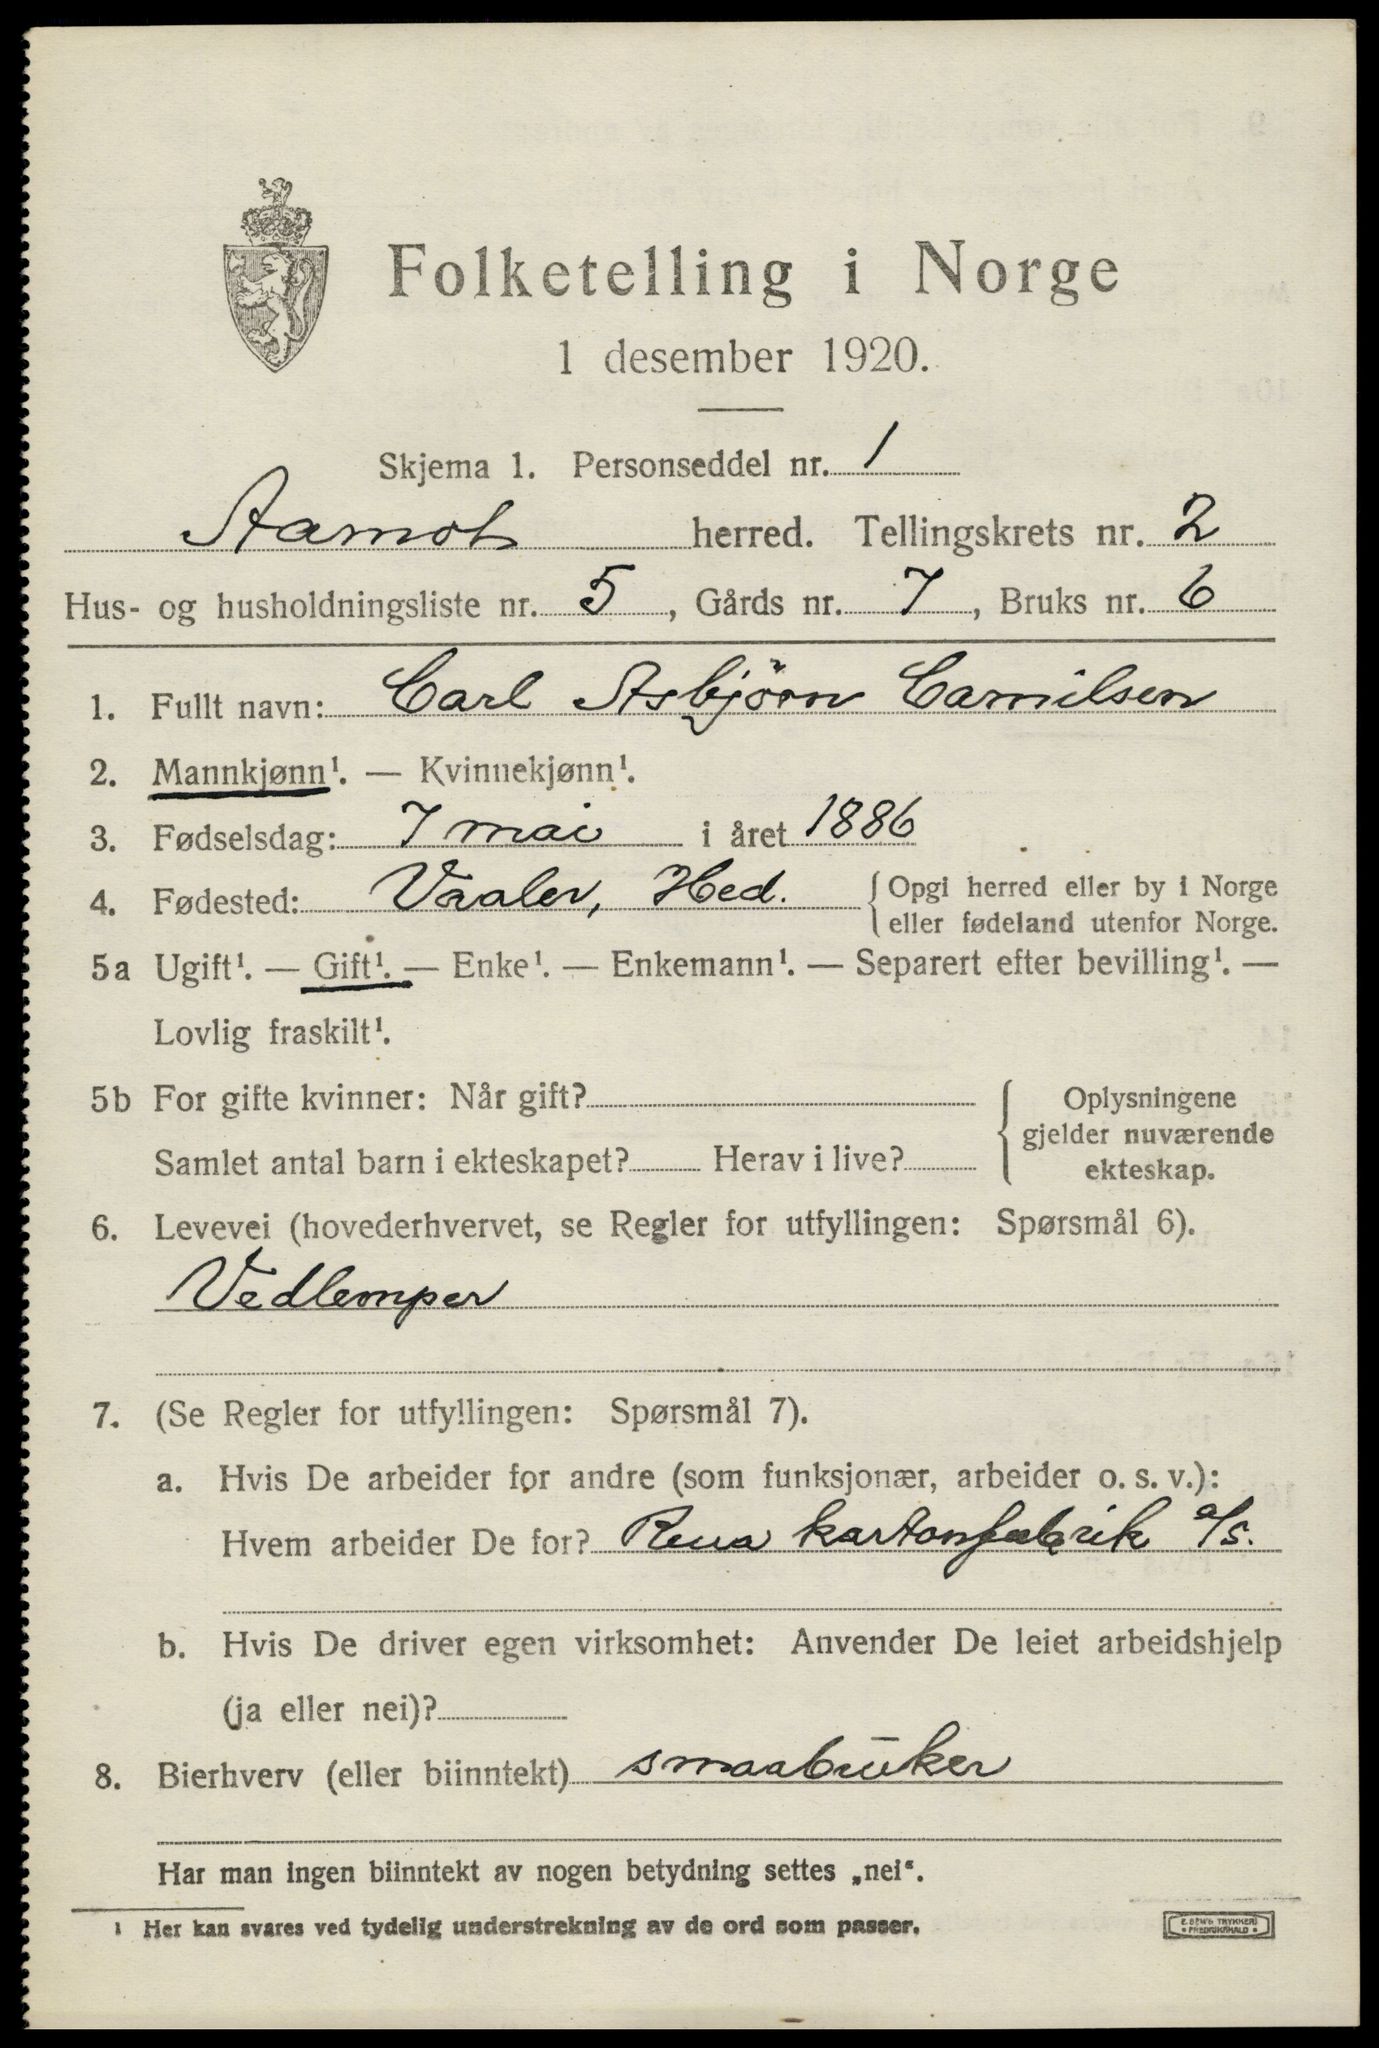 Folketelling i Norge
1 desember 1920.
Skjema 1. Personseddel nr. 1
Aamot herred. Tellingskrets nr. 2
Hus- og husholdningsliste nr. 5, Gårds nr. 7, Bruks nr. 6
1. Fullt navn: Carl Asbjörn Camilsen
2. Mannkjønn¹. — Kvinnekjønn¹.
3. Fødselsdag: 7 mai i året 1886
4. Fødested: Vaaler, Hed. Opgi herred eller by i Norge
eller fødeland utenfor Norge.
5a Ugift¹. — Gift¹. — Enke¹. — Enkemann¹. — Separert efter bevilling¹. —
Lovlig fraskilt¹.
5b For gifte kvinner: Når gift? Oplysningene
gjelder nuværende
Samlet antal barn i ekteskapet? Herav i live? ekteskap.
6. Levevei (hovederhvervet, se Regler for utfyllingen: Spørsmål 6).
Vedlemper
7. (Se Regler for utfyllingen: Spørsmål 7).
a. Hvis De arbeider for andre (som funksjonær, arbeider o. s. v.):
Hvem arbeider De for? Rena kartonfabrik a/s.
b. Hvis De driver egen virksomhet: Anvender De leiet arbeidshjelp
(ja eller nei)?
8. Bierhverv (eller biinntekt) smaabruker
Har man ingen biinntekt av nogen betydning settes „nei“.
¹ Her kan svares ved tydelig understrekning av de ord som passer.